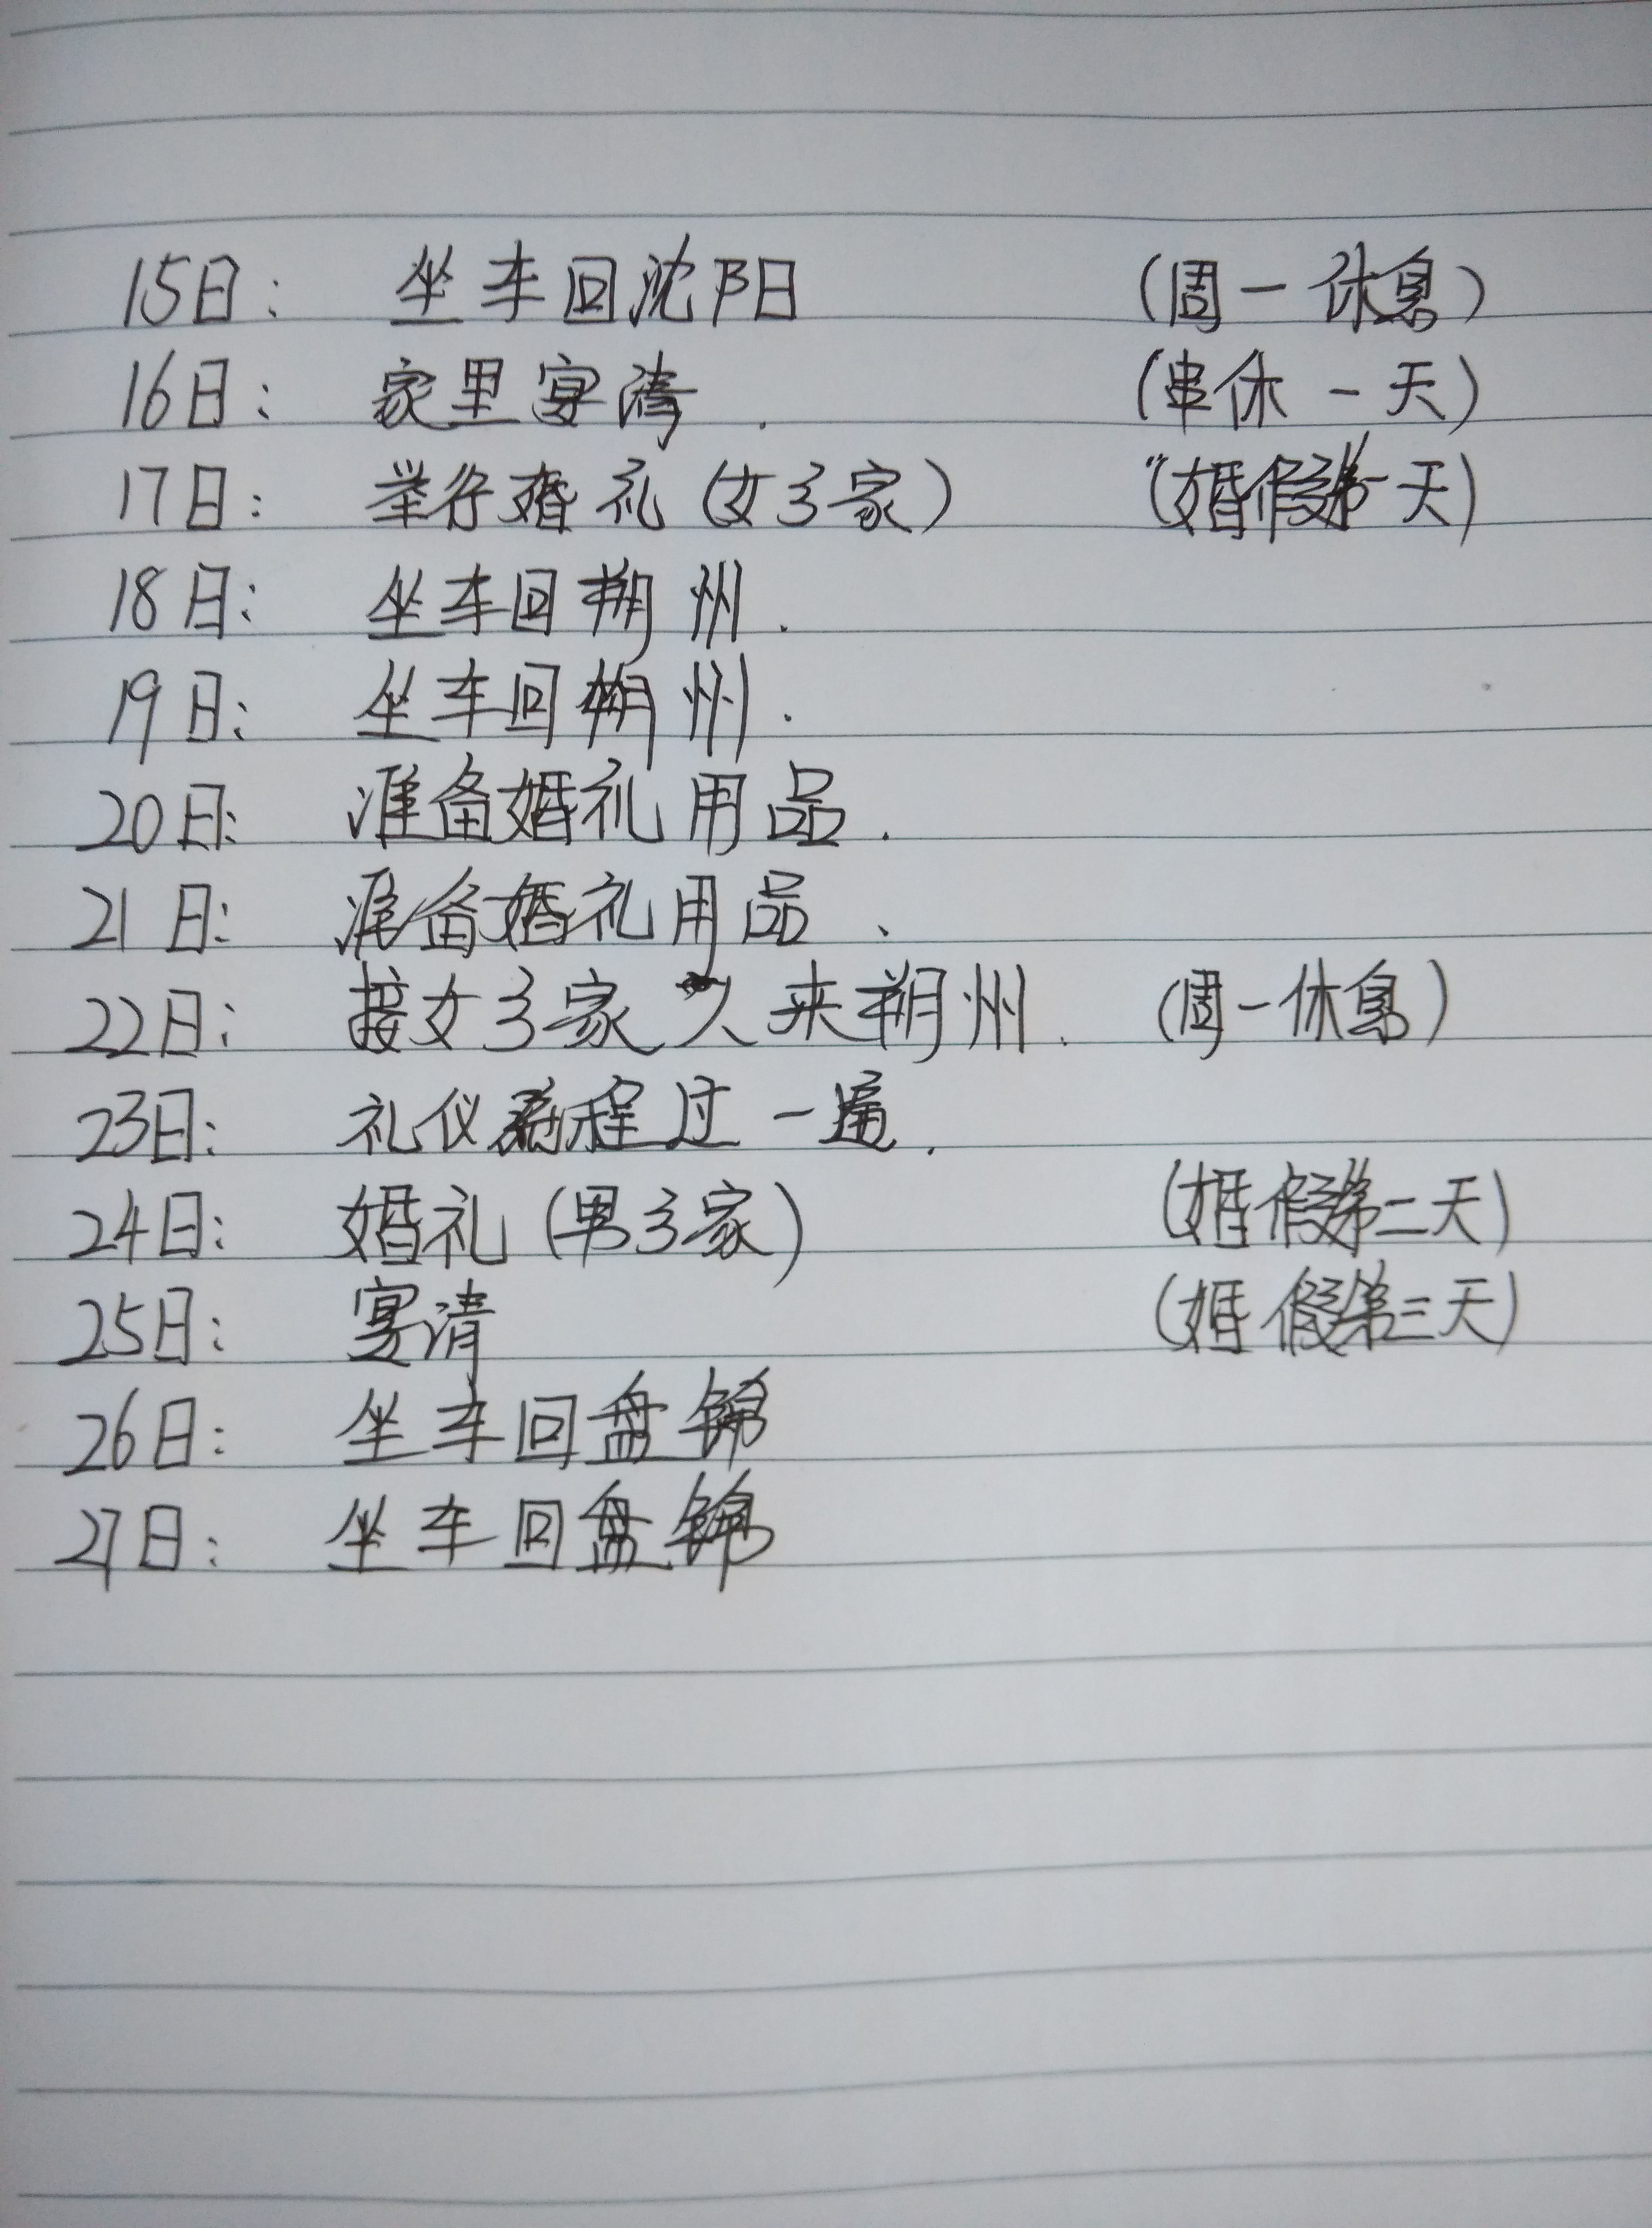 15日: 坐车回沈阳 (周一休息)
16日: 家里宴请. (串休一天)
17日: 举行婚礼(女方家) (婚假第一天)
18日: 坐车回朔州.
19日: 坐车回朔州.
20日: 准备婚礼用品.
21日: 准备婚礼用品、
22日: 接女方家人来朔州. (周一休息)
23日: 礼仪流程过一遍.
24日: 婚礼(男方家) (婚假第二天)
25日: 宴请 (婚假第三天)
26日: 坐车回盘锦
27日: 坐车回盘锦